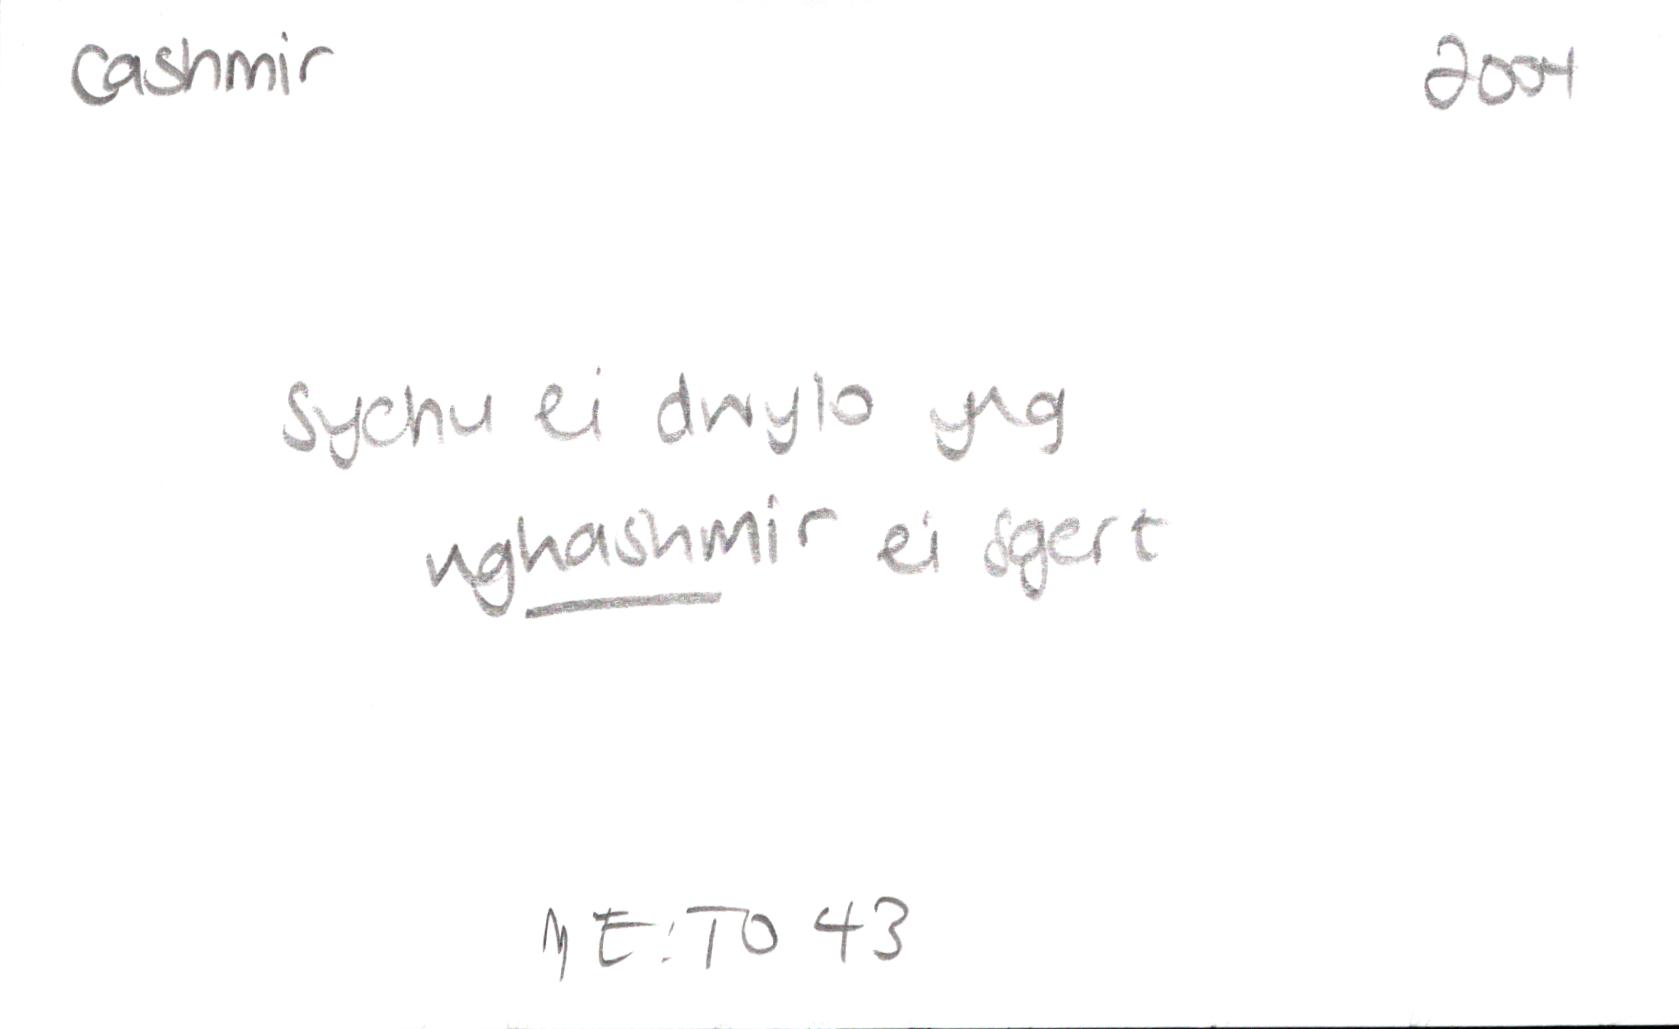 Cashmir 2004
Sychu ei dwylo yng
nghashmir ei sgert
ME:TO 43